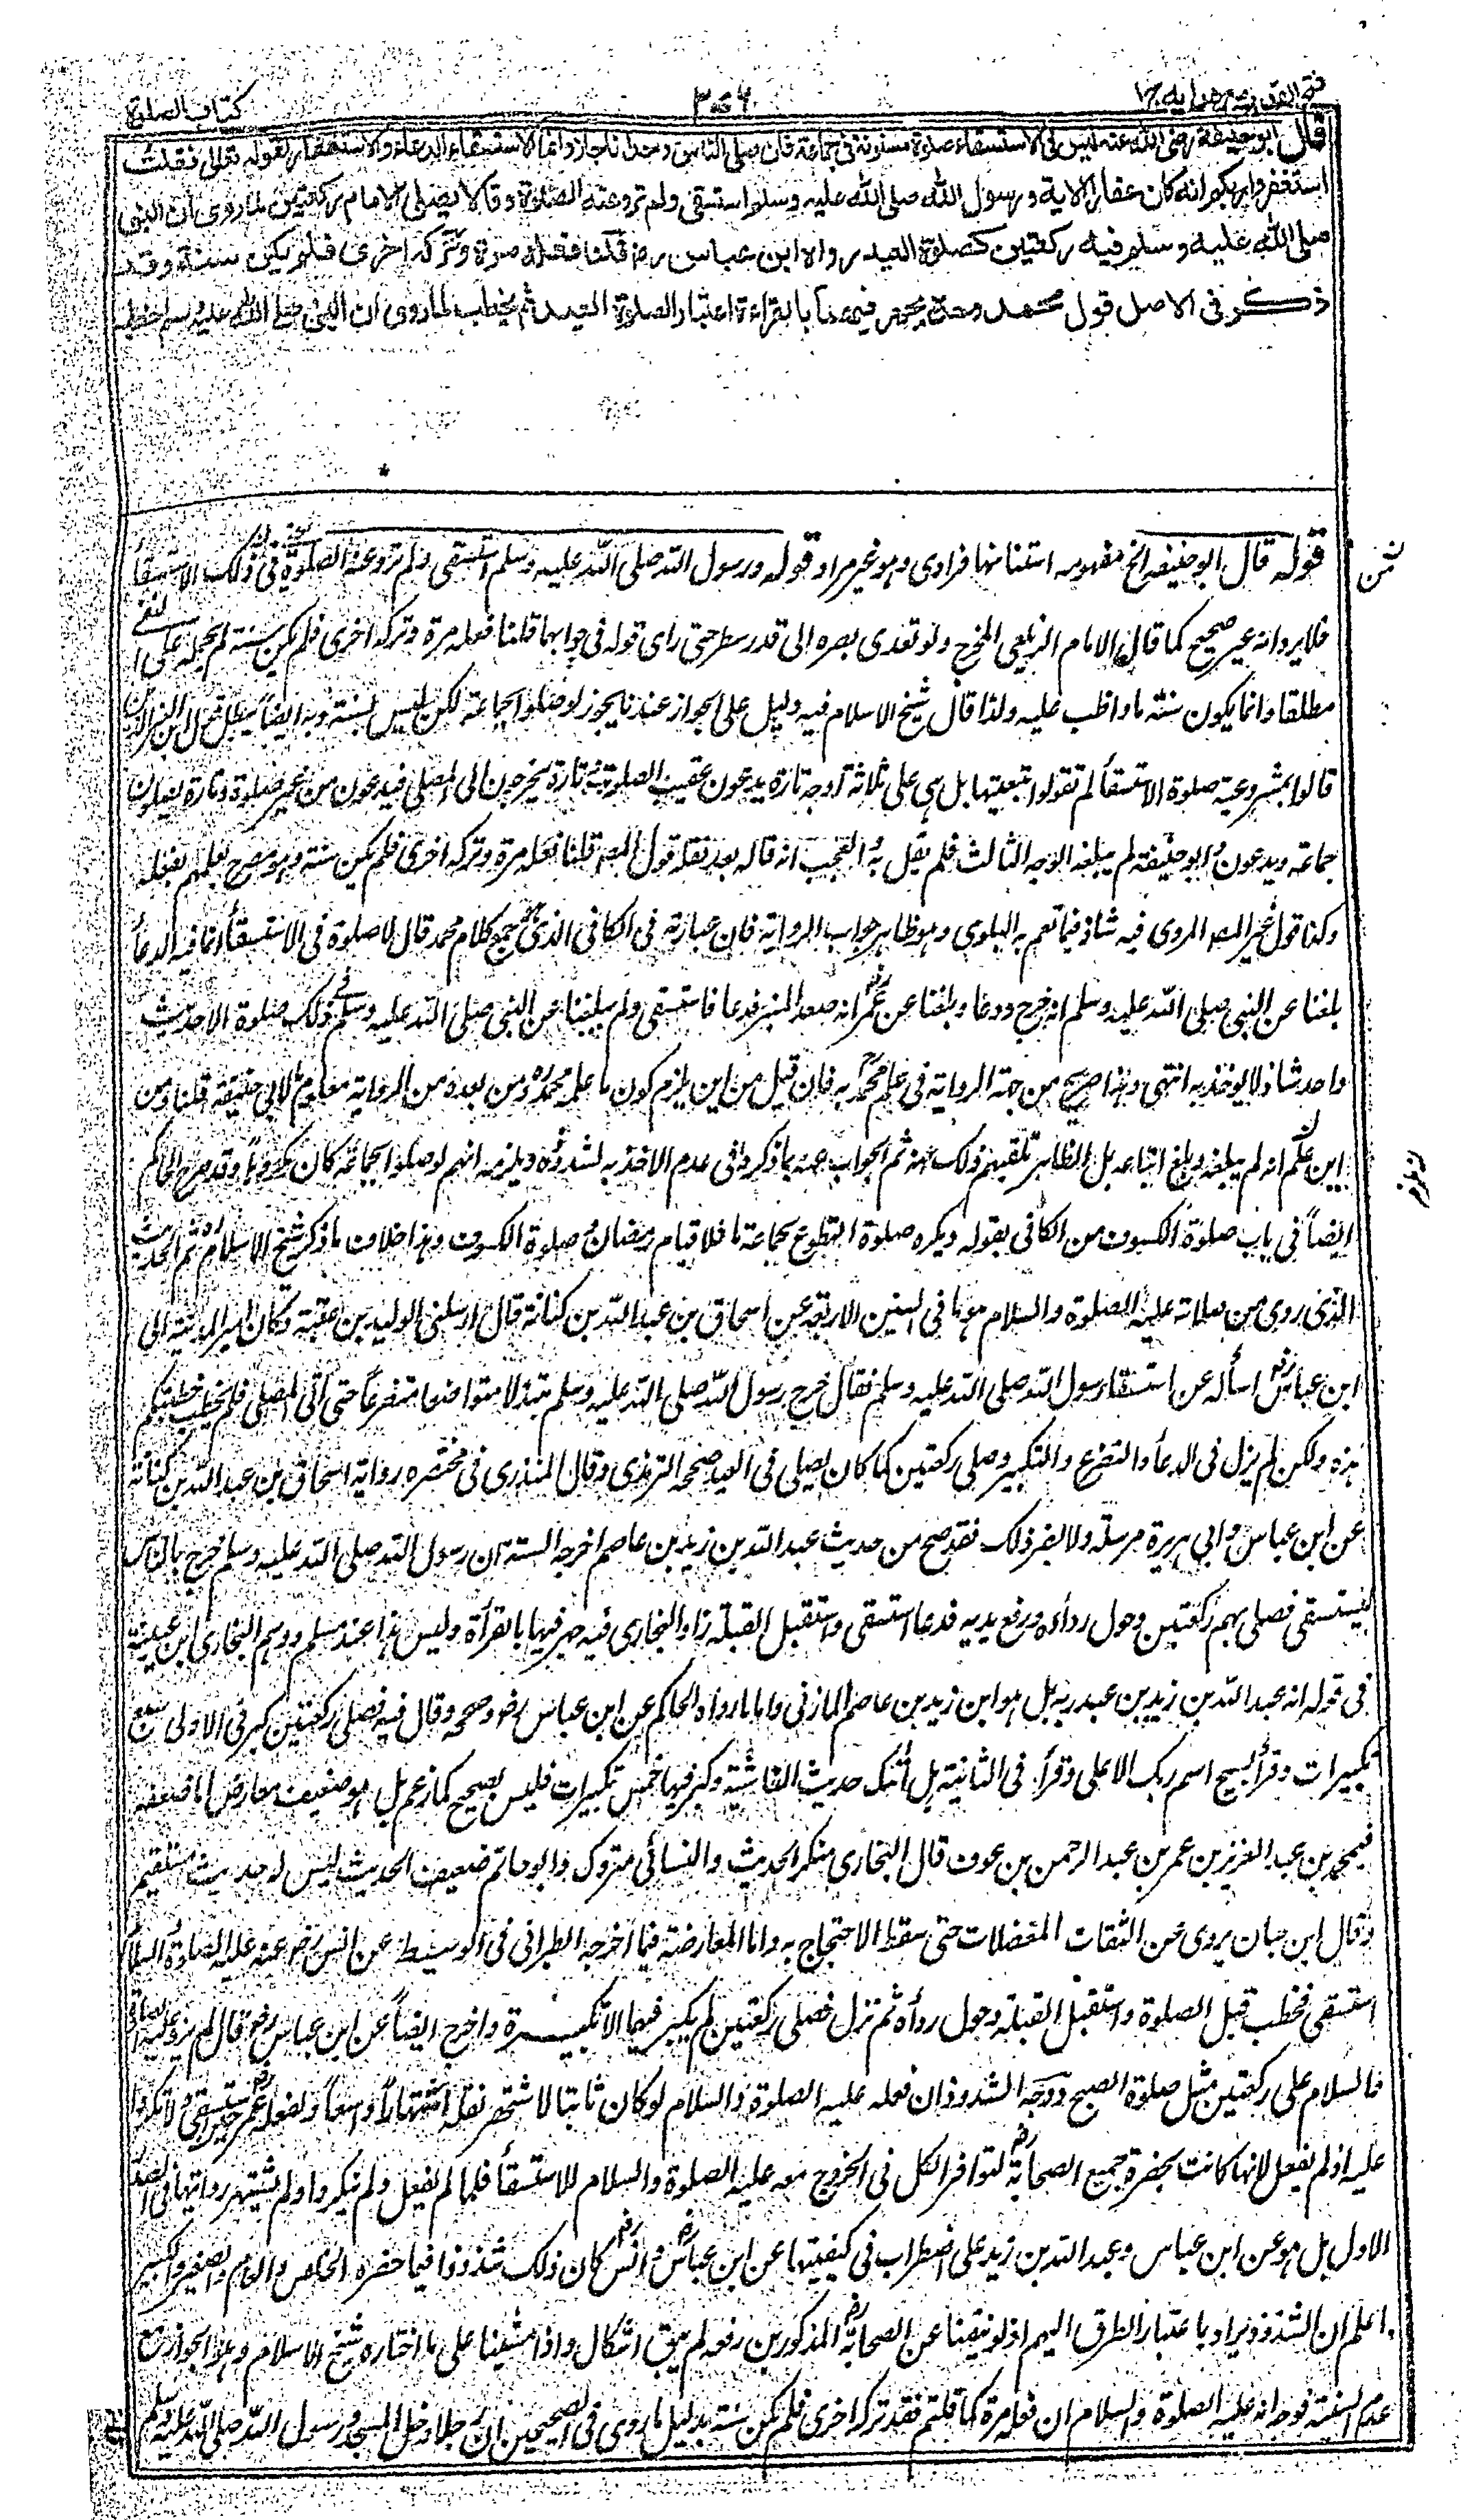 فتح القدير مع هدايه ج١
٣٠٦
كتاب الصلوة
قال ابو حنيفة رضى الله عنه ليس فى الاستسقاء صلوة مسنونة فى جماعة فان صلى الناس وحدانا جاز وانما الاستسقاء الدعاء والاستغفار لقوله تعالى فقلت
استغفروا ربكم انه كان غفارا الاية ورسول الله صلى الله عليه وسلم استسقى ولم تروعنه الصلوة وقالا يصلى الامام ركعتين لما روى ان النبى
صلى الله عليه وسلم صلى فيه ركعتين كصلوة العيد رواه ابن عباس رض قلنا فعله مرة وتركه اخرى فلم يكن سنة وقد
ذكر فى الاصل قول محمد وحده ويجهر فيهما بالقراءة اعتبارا لصلوة العيد ثم يخطب لما روى ان النبى صلى الله عليه وسلم خطب
قوله قال ابو حنيفه الخ مفهومه استنانها فرادى وهو غير مراد قوله ورسول الله صلى الله عليه وسلم استسقى ولم تروعنه الصلوة فى ذلك الاستسقأ
فلا يرد انه غير صحيح كما قال الامام الزيلعى المخرج ولو تعدى بصره الى قدر سطر حتى راى قوله فى جوابهما قلنا فعله مرة وتركه اخرى فلم يكن سنة لم يحمله على النفى
مطلقا وانما يكون سنة ما واظب عليه ولذا قال شيخ الاسلام فيه دليل على الجواز عندنا يجوز لو صلوا بجماعة لكن ليس بسنة وبه ايضاً يبطل قول ابن العز الذين
قالوا بمشروعية صلوة الاستسقأ لم تقولوا بتعيتها بل هى على ثلاثة اوجه تارة يدعون عقيب الصلوة وتارة يخرجون الى المصلى فيدعون من غير صلوة وتارة يصلون
جماعة ويدعون وابو حنيفة لم يبلغه الوجه الثالث فلم يقل به والعجب انه قاله بعد نقله قول المصه قلنا فعله مرة وتركه اخرى فلم يكن سنة وهو مصرح بعلمهم بفعله
وكذا قول غير المصه المروى فيه شاذ فيما تعم به البلوى وهو ظاهر جواب الرواية فان عبارته فى الكافى الذى هو جمع كلام محمد قال لا صلوة فى الاستسقأ انما فيه الدعأ
بلغنا عن النبى صلى الله عليه وسلم انه خرج ودعا وبلغنا عن عمر رض انه صعد المنبر فدعا فاستسقى ولم يبلغنا عن النبى صلى الله عليه وسلم فى ذلك صلوة الا حديث
واحد شاذ لا يوخذ به انتهى وهذا صريح من جهة الرواية فى علم محمد به فان قيل من اين يلزم كون ما علمه محمد ره ومن بعده من الرواية معلوما لابى حنيفة قلنا ومن
اين علم انه لم يبلغه وبلغ اتباعه بل الظاهر تلقيهم ذلك عنه ثم الجواب عنه بما ذكر فى عدم الاخذ به لشذوذه ويلزمه انهم لو صلوا بجماعة كان مكروها وقد صرح الحاكم
ايضاً فى باب صلوة الكسوف من الكافى بقوله ويكره صلوة التطوع جماعة ما خلا قيام رمضان وصلوة الكسوف وهذا خلاف ما ذكر شيخ الاسلام ره ثم الحديث
الذى روى من صلاته عليه الصلوة والسلام هو ما فى السنن الاربعة عن اسحاق بن عبد الله بن كنانة قال ارسلنى الوليد بن عقبة وكان امير المدينة الى
ابن عباس رض اسأله عن استسقاء رسول الله صلى الله عليه وسلم فقال خرج رسول الله صلى الله عليه وسلم متبذلا متواضعا متضرعاً حتى اتى المصلى فلم يخطب خطبتكم
هذه ولكن لم يزل فى الدعأ والتضرع والتكبير وصلى ركعتين كما كان يصلى فى العيد صححه الترمذى وقال المنذرى فى مختصره رواية اسحاق بن عبد الله بن كنانة
عن ابن عباس وابى هريرة مرسلة ولا يضر ذلك فقد صح من حديث عبد الله بن زيد بن عاصم اخرجه الستة ان رسول الله صلى الله عليه وسلم خرج بالناس
ليستسقى فصلى بهم ركعتين وحول رداءه ورفع يديه فدعا استسقى واستقبل القبلة زاد البخارى فيه جهر فيهما بالقرأة وليس هذا عند مسلم ووهم البخارى ابن عيينة
فى قوله انه عبد الله بن زيد بن عبد ربه بل هو ابن زيد بن عاصم المازنى واما ما رواه الحاكم عن ابن عباس رض وصححه وقال فيه فصلى ركعتين كبر فى الاولى سبع
تكبيرات وقرأ بسبح اسم ربك الاعلى وقرأ فى الثانية هل أتٰك حديث الغاشية وكبر فيها خمس تكبيرات فليس بصحيح كما زعم بل هو ضعيف معارض اما ضعفه
فبمحمد بن عبد العزيز بن عمر بن عبد الرحمن بن عوف قال البخارى منكر الحديث والنسائى متروك وابو حاتم ضعيف الحديث ليس له حديث مستقيم
وقال ابن حبان يروى عن الثقات المعضلات حتى سقط الاحتجاج به واما المعارضة فيما اخرجه الطبرانى فى الوسيط عن انس رض عنه عليه الصلوة والسلام
استسقى فخطب قبل الصلوة واستقبل القبلة وحول ردأه ثم نزل فصلى ركعتين لم يكبر فيهما الا تكبيرة واخرج ايضاً عن ابن عباس رض قال لم يزد عليه الصلوة
والسلام على ركعتين مثل صلوة الصبح ووجه الشذوذ ان فعله عليه الصلوة والسلام لو كان ثابتا لاشتهر نقله اشتهاراً واسعاً ولفعله عمر رض حين استسقى ولانكروا
عليه اذ لم يفعل لانها كانت بحضرة جميع الصحابة رض لتوافر الكل فى الخروج معه عليه الصلوة والسلام للاستسقأ فلما لم يفعل ولم ينكروا ولم يشتهر روايتها فى الصدر
الاول بل هو عن ابن عباس وعبد الله بن زيد على اضطراب فى كيفيتها عن ابن عباس رض وانس رض كان ذلك شذوذا فيما حضره الخاص والعام والصغير والكبير
واعلم ان الشذوذ يراد باعتبار الطرق اليهم اذ لو تيقنا عن الصحابة رض المذكورين رفعه لم يبق اشكال واذا مشينا على ما اختاره شيخ الاسلام وهو الجواز مع
عدم السنية فوجه انه عليه الصلوة والسلام ان فعله مرة كما قلتم فقد تركه اخرى فلم يكن سنة بدليل ما روى فى الصحيحين ان رجلا دخل المسجد ورسول الله صلى الله عليه وسلم